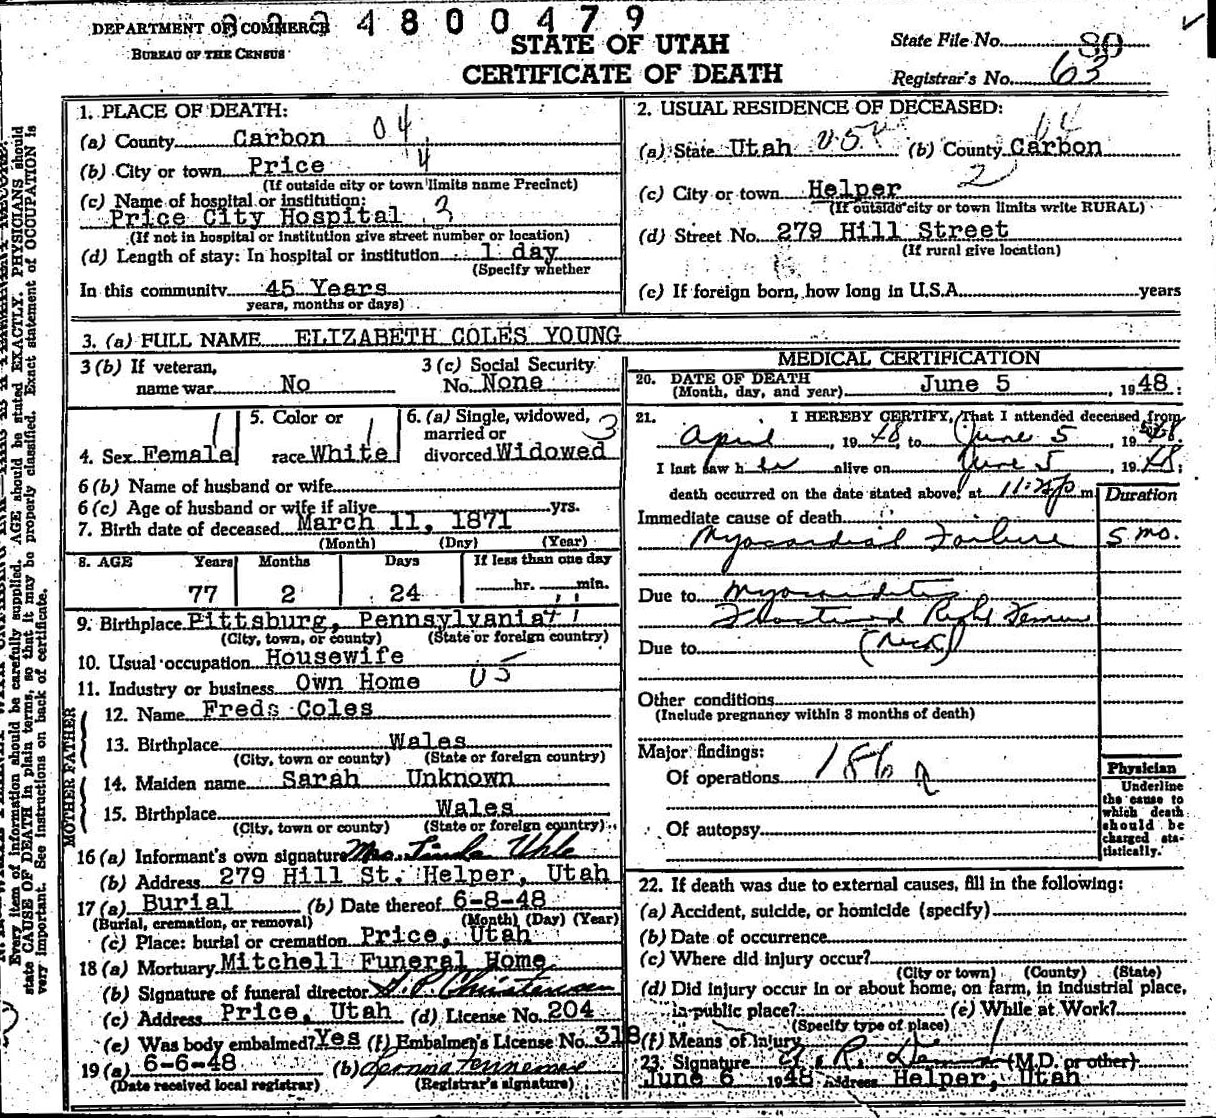 4800479
DEPARTMENT OF COMMERCE
BUREAU OF THE CENSUS
STATE OF UTAH
CERTIFICATE OF DEATH
State File No. 80
Registrar's No. 63
1. PLACE OF DEATH:
(a) County Carbon 04
(b) City or town Price 4
(If outside city or town limits name Precinct)
(c) Name of hospital or institution:
Price City Hospital 3
(If not in hospital or institution give street number or location)
(d) Length of stay: In hospital or institution 1 day
(Specify whether
In this community 45 Years
years, months or days)
2. USUAL RESIDENCE OF DECEASED:
(a) State Utah (b) County Carbon
(c) City or town Helper 2
(If outside city or town limits write RURAL)
(d) Street No. 279 Hill Street
(If rural give location)
(e) If foreign born, how long in U.S.A. years
3. (a) FULL NAME ELIZABETH COLES YOUNG
3 (b) If veteran,
name war No
3 (c) Social Security
No. None
4. Sex Female 1
5. Color or
race White 1
6. (a) Single, widowed,
married or
divorced Widowed 3
6 (b) Name of husband or wife
6 (c) Age of husband or wife if alive yrs.
7. Birth date of deceased March 11, 1871
(Month) (Day) (Year)
8. AGE Years Months Days If less than one day
77 2 24 hr. min.
9. Birthplace Pittsburg, Pennsylvania
(City, town, or county) (State or foreign country)
10. Usual occupation Housewife
11. Industry or business Own Home 05
FATHER
12. Name Freds Coles
13. Birthplace Wales
(City, town or county) (State or foreign country)
MOTHER
14. Maiden name Sarah Unknown
15. Birthplace Wales
(City, town or county) (State or foreign country)
16 (a) Informant's own signature Mrs. Linda Uhle
(b) Address 279 Hill St. Helper, Utah
17 (a) Burial (b) Date thereof 6-8-48
(Burial, cremation, or removal) (Month) (Day) (Year)
(c) Place: burial or cremation Price, Utah
18 (a) Mortuary Mitchell Funeral Home
(b) Signature of funeral director Christensen
(c) Address Price, Utah (d) License No. 204
(e) Was body embalmed? Yes (f) Embalmer's License No. 318
19 (a) 6-6-48 (b)
(Date received local registrar) (Registrar's signature)
MEDICAL CERTIFICATION
20. DATE OF DEATH
(Month, day, and year) June 5, 1948.
21. I HEREBY CERTIFY, That I attended deceased from
April, 1948 to June 5, 1948.
I last saw her alive on June 5, 1948;
death occurred on the date stated above, at m.
Duration
Immediate cause of death
Myocardial Failure 5 mo.
Due to Myocarditis
Right Femur
Due to (Neck)
Other conditions
(Include pregnancy within 3 months of death)
Major findings:
Of operations 186
Of autopsy
Physician
Underline
the cause to
which death
should be
charged sta-
tistically.
22. If death was due to external causes, fill in the following:
(a) Accident, suicide, or homicide (specify)
(b) Date of occurrence
(c) Where did injury occur?
(City or town) (County) (State)
(d) Did injury occur in or about home, on farm, in industrial place,
in public place? (e) While at Work?
(Specify type of place)
(f) Means of injury
23. Signature (M.D. or other)
June 6 1948 Address Helper, Utah
Every item of information should be carefully supplied. AGE should be stated EXACTLY. PHYSICIANS should
state CAUSE OF DEATH in plain terms, so that it may be properly classified. Exact statement of OCCUPATION is
very important. See instructions on back of certificate.